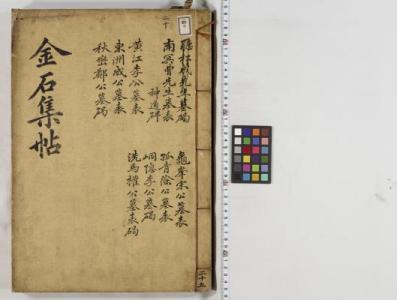 聽松成先生墓碣
南冥曹先生墓表
神道碑
黄江李公墓表
東洲成公墓表
秋巒鄭公墓碣
龜峯宋公墓表
孤青徐公墓表
峒隱李公墓碣
洗馬權公墓表碣
金石集帖